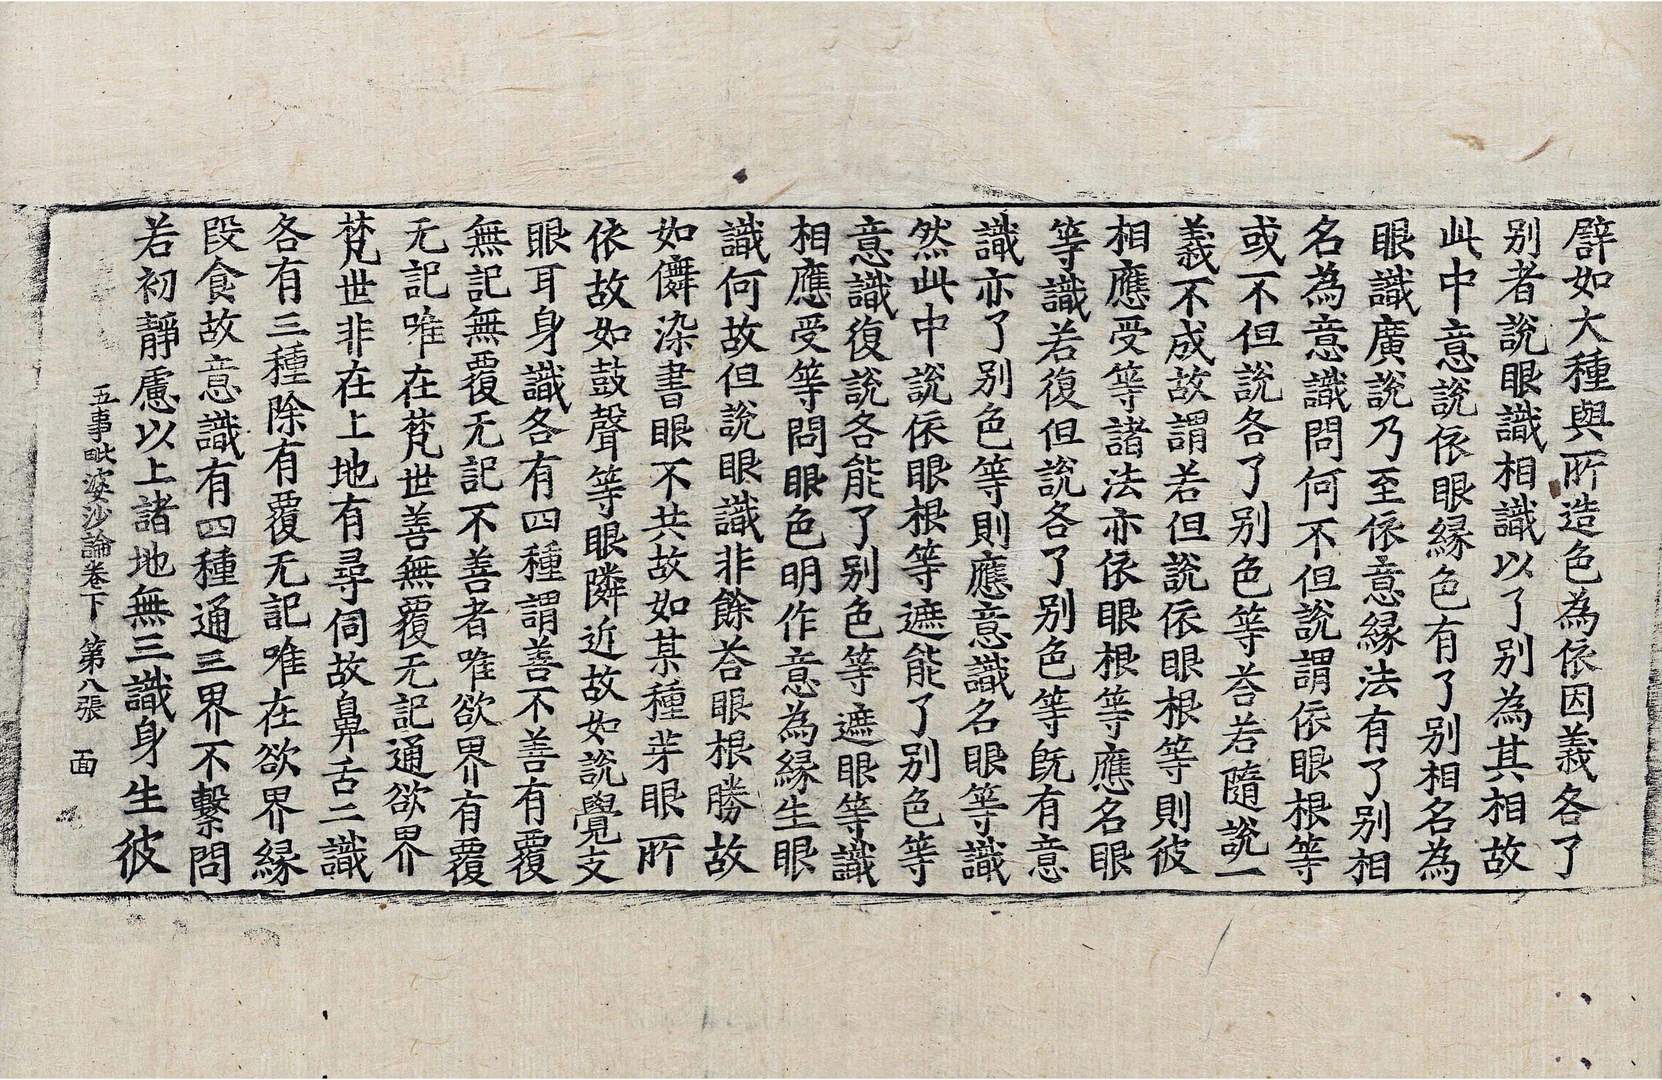 譬如大種與所造色為依因義各了
别者說眼識相識以了别為其相故
此中意說依眼緣色有了别相名為
眼識廣說乃至依意緣法有了别相
名為意識問何不但說謂依眼根等
或不但說各了别色等荅若隨說一
義不成故謂若但說依眼根等則彼
相應受等諸法亦依眼根等應名眼
等識若復但說各了别色等旣有意
識亦了别色等則應意識名眼等識
然此中說依眼根等遮能了别色等
意識復說各能了别色等遮眼等識
相應受等問眼色明作意為緣生眼
識何故但說眼識非餘荅眼根勝故
如儛染書眼不共故如某種芽眼所
依故如鼓聲等眼隣近故如說覺支
眼耳身識各有四種謂善不善有覆
無記無覆无記不善者唯欲界有覆
无記唯在梵世善無覆无記通欲界
梵世非在上地有尋伺故鼻舌二識
各有三種除有覆无記唯在欲界緣
段食故意識有四種通三界不繫問
若初靜慮以上諸地無三識身生彼
五事毗婆沙論卷下 第八張 面